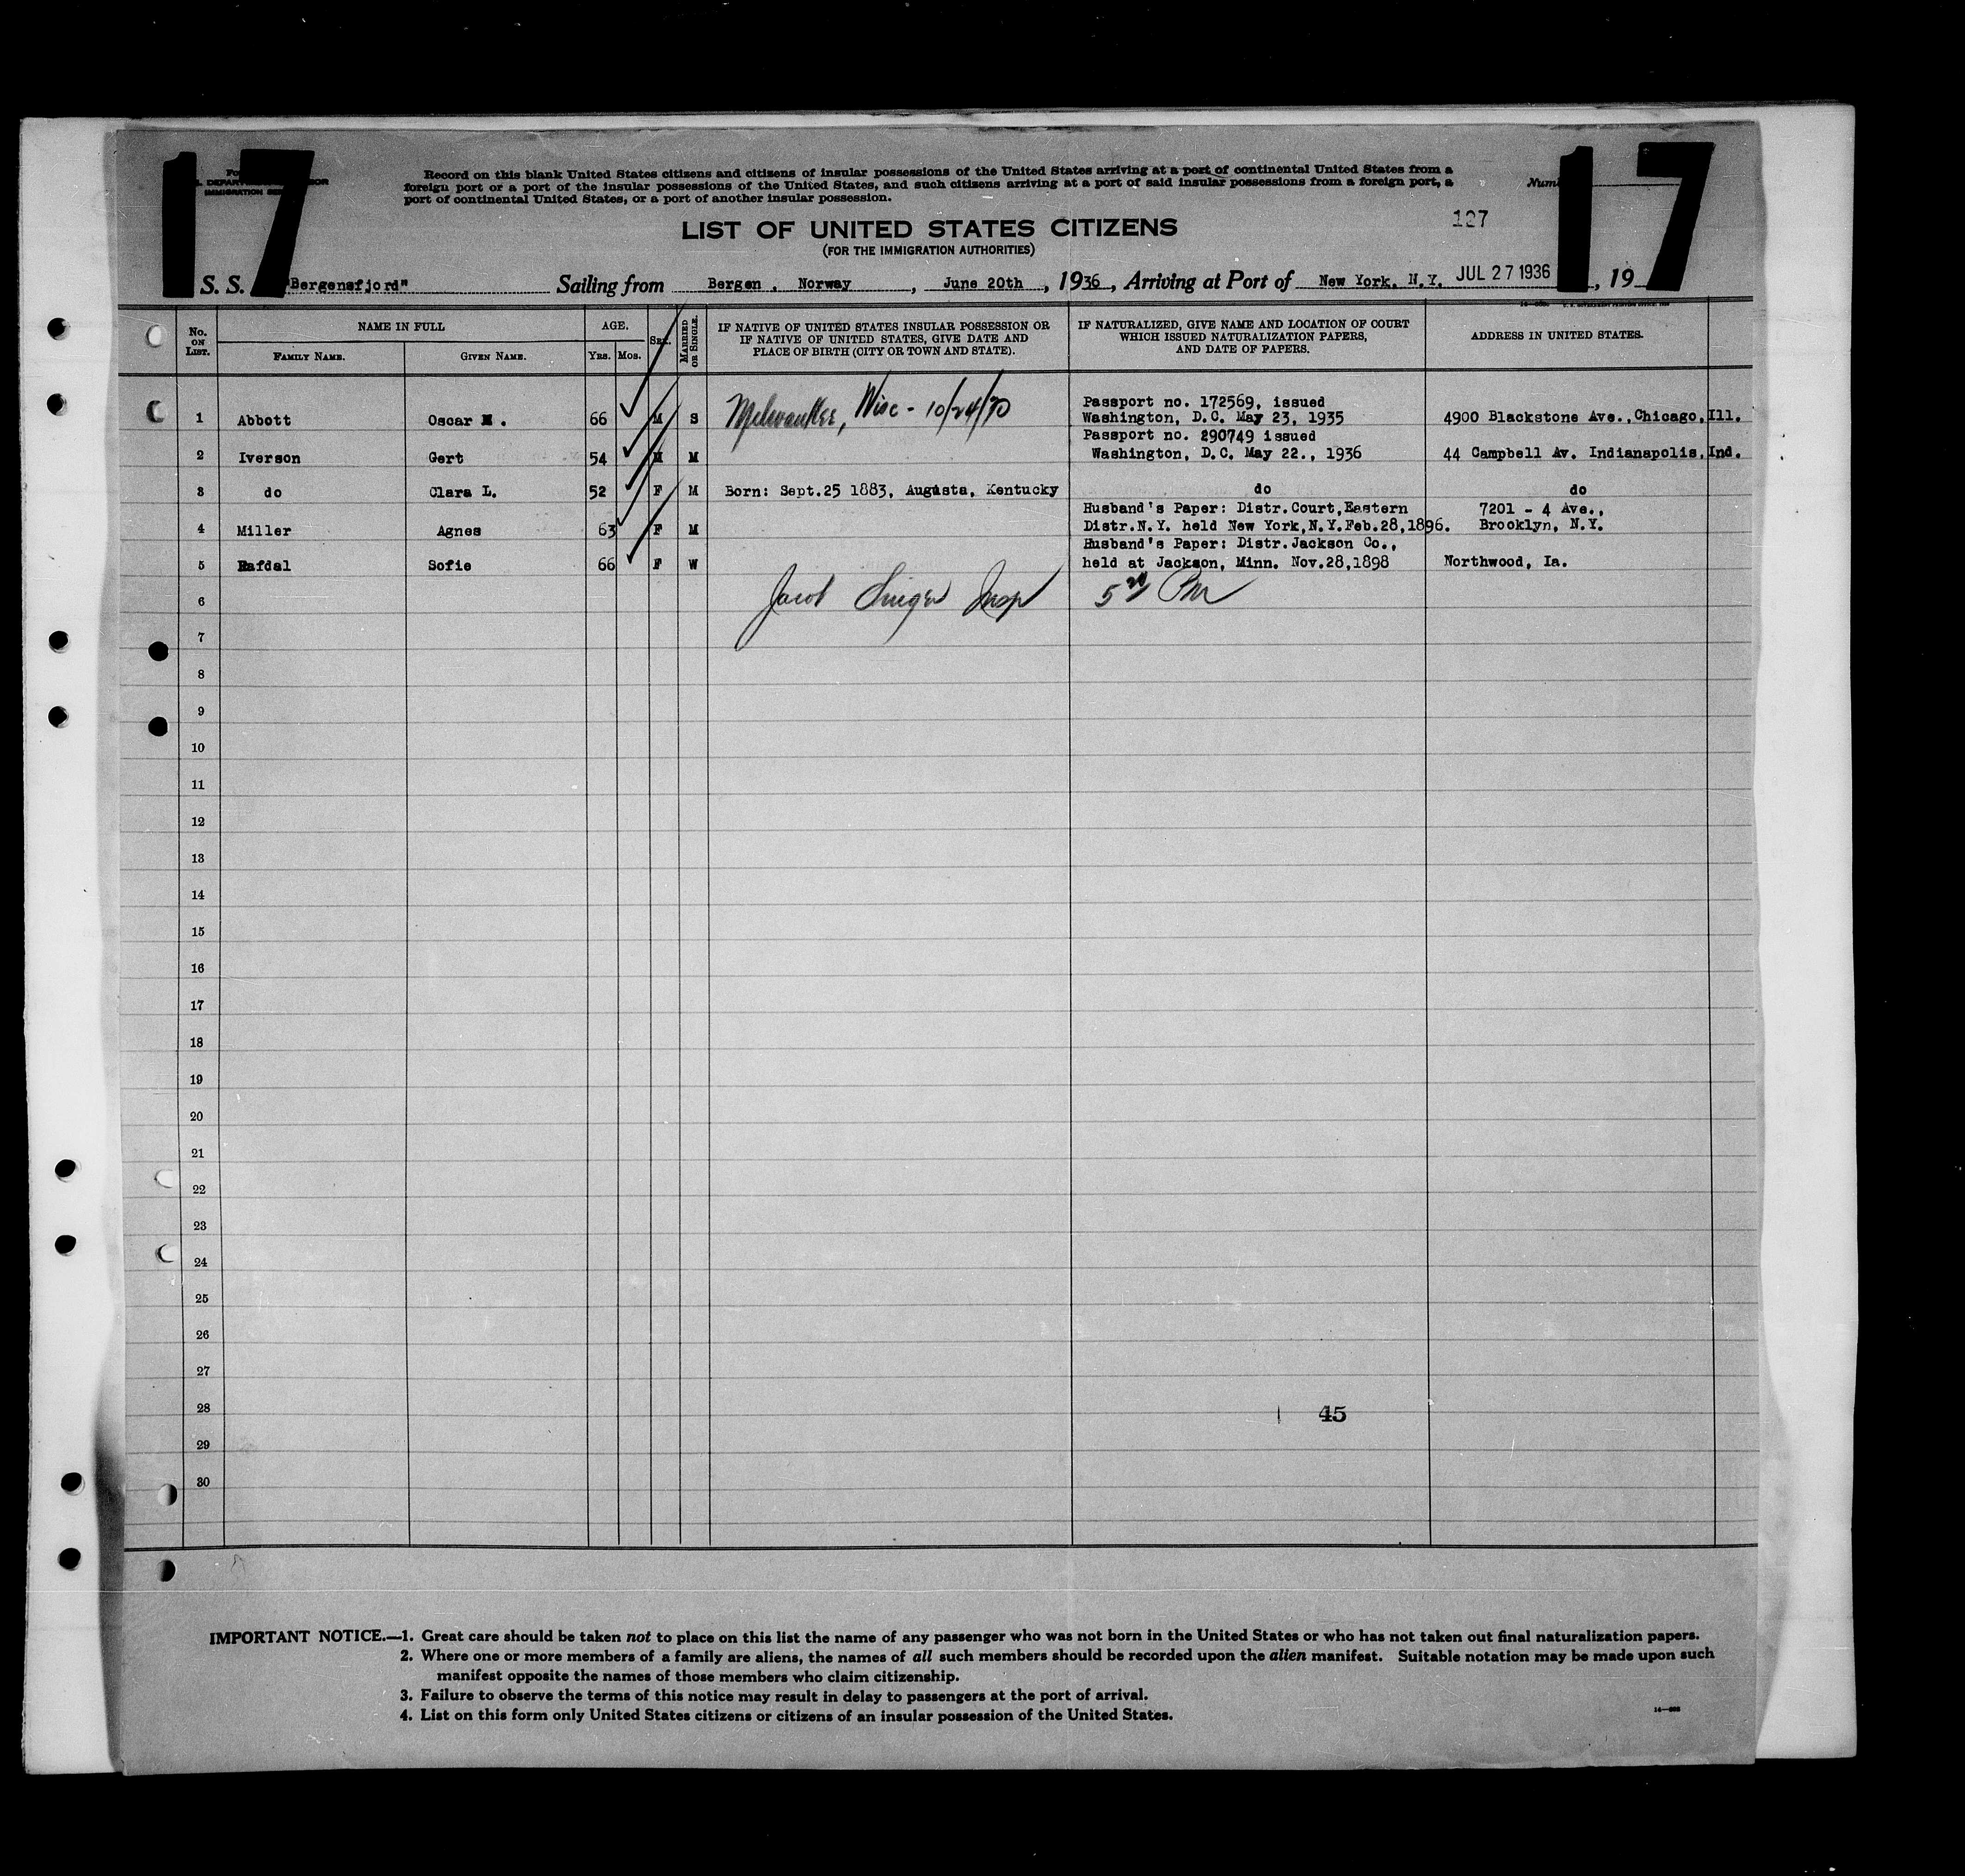 17
17
Record on this blank United States citizens and citizens of insular possessions of the United States arriving at a port of continental United States from a
foreign port or a port of the insular possessions of the United States, and such citizens arriving at a port of said insular possessions from a foreign port, a
port of continental United States, or a port of another insular possession.
127
LIST OF UNITED STATES CITIZENS
(FOR THE IMMIGRATION AUTHORITIES)
S. S. "Bergensfjord" Sailing from Bergen, Norway, June 20th, 1936, Arriving at Port of New York, N.Y. JUL 27 1936, 19
No. ON LIST. NAME IN FULL AGE. SEX. MARRIED OR SINGLE. IF NATIVE OF UNITED STATES INSULAR POSSESSION OR IF NATIVE OF UNITED STATES, GIVE DATE AND PLACE OF BIRTH (CITY OR TOWN AND STATE). IF NATURALIZED, GIVE NAME AND LOCATION OF COURT WHICH ISSUED NATURALIZATION PAPERS, AND DATE OF PAPERS. ADDRESS IN UNITED STATES.
FAMILY NAME. GIVEN NAME. YRS. MOS.
Passport no. 172569, issued
1 Abbott Oscar M. 66 M S Milwaukee, Wisc - 10/24/70 Washington, D.C. May 23, 1935 4900 Blackstone Ave., Chicago, Ill.
Passport no. 290749 issued
2 Iverson Gert 54 M M Washington, D.C. May 22., 1936 44 Campbell Av. Indianapolis, Ind.
3 do Clara L. 52 F M Born: Sept.25 1883, Augusta, Kentucky do do
Husband's Paper: Distr.Court,Eastern 7201 - 4 Ave.,
4 Miller Agnes 63 F M Distr.N.Y. held New York,N.Y.Feb.28,1896. Brooklyn, N.Y.
Husband's Paper: Distr.Jackson Co.,
5 Rafdal Sofie 66 F W held at Jackson, Minn. Nov.28,1898 Northwood, Ia.
6 Jacob Singer Insp
7
8
9
10
11
12
13
14
15
16
17
18
19
20
21
22
23
24
25
26
27
28 45
29
30
IMPORTANT NOTICE.—1. Great care should be taken not to place on this list the name of any passenger who was not born in the United States or who has not taken out final naturalization papers.
2. Where one or more members of a family are aliens, the names of all such members should be recorded upon the alien manifest. Suitable notation may be made upon such
manifest opposite the names of those members who claim citizenship.
3. Failure to observe the terms of this notice may result in delay to passengers at the port of arrival.
4. List on this form only United States citizens or citizens of an insular possession of the United States.